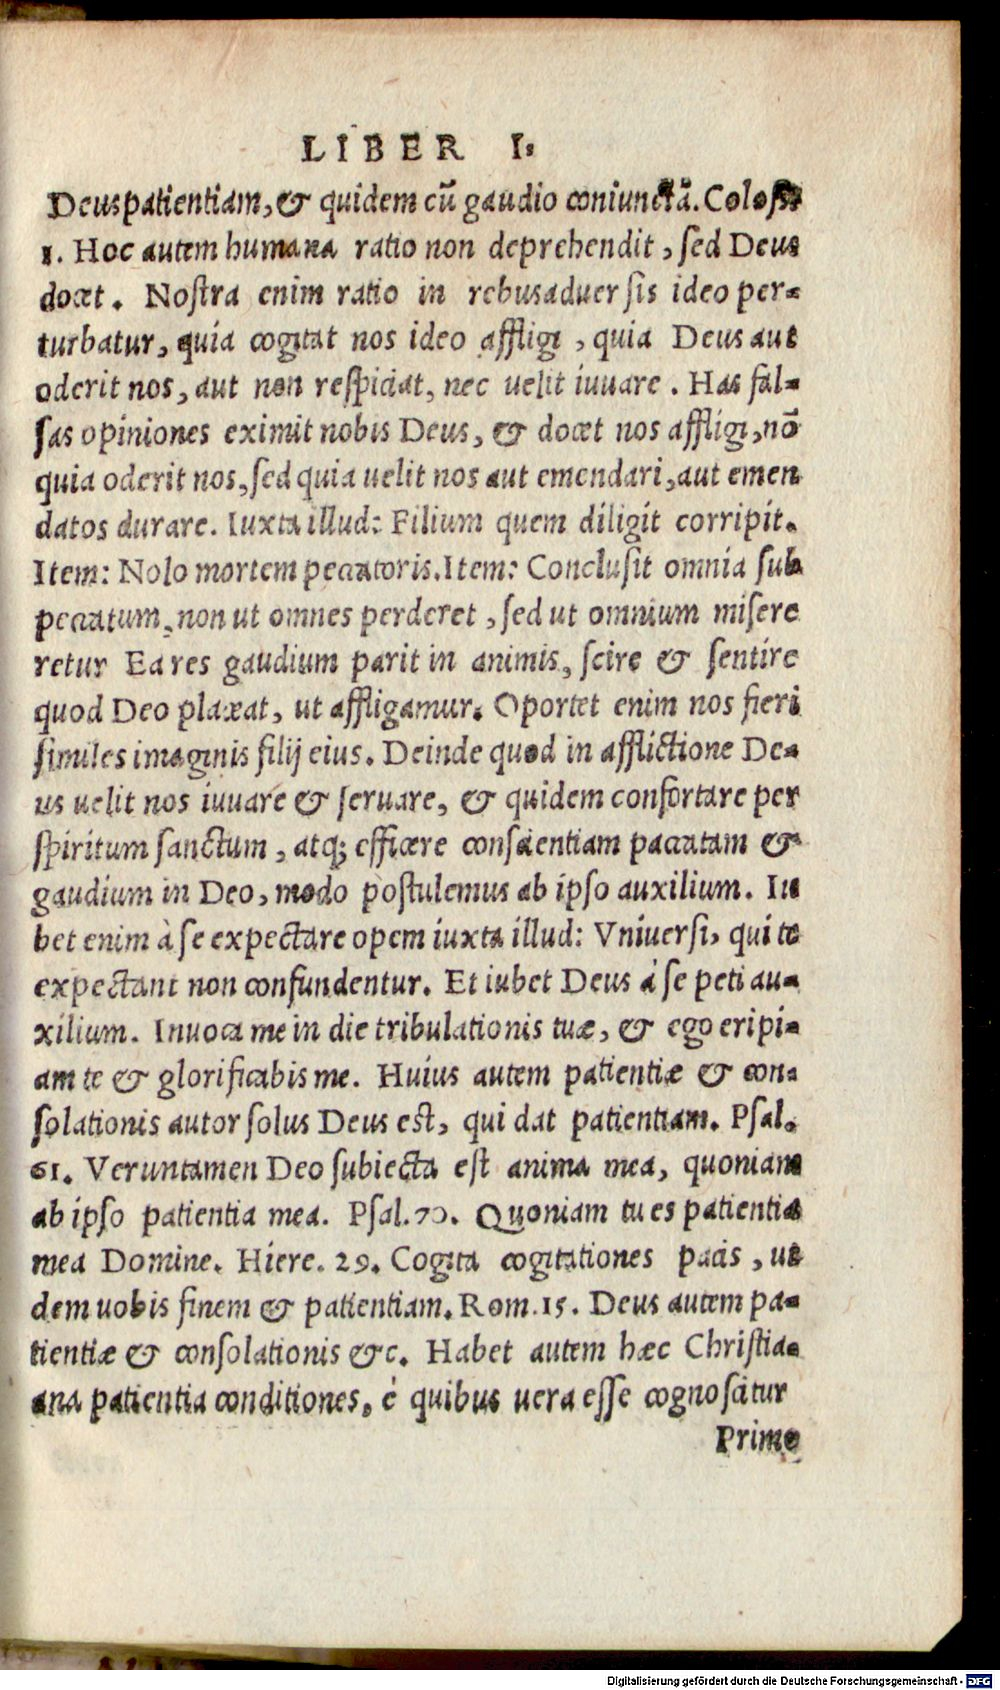 LIBER I.
Deus patientiam, & quidem cũ gaudio coniunctã. Coloss.
1. Hoc autem humana ratio non deprehendit, sed Deus
docet. Nostra enim ratio in rebus aduersis ideo per-
turbatur, quia cogitat nos ideo affligi, quia Deus aut
oderit nos, aut non respiciat, nec uelit iuuare. Has fal-
sas opiniones eximit nobis Deus, & docet nos affligi, nõ
quia oderit nos, sed quia uelit nos aut emendari, aut emen
datos durare. Iuxta illud: Filium quem diligit corripit.
Item: Nolo mortem peccatoris. Item: Conclusit omnia sub
peccatum, non ut omnes perderet, sed ut omnium misere
retur Ea res gaudium parit in animis, scire & sentire
quod Deo placeat, ut affligamur. Oportet enim nos fieri
similes imaginis filij eius. Deinde quod in afflictione De-
us uelit nos iuuare & seruare, & quidem confortare per
spiritum sanctum, atq; efficere conscientiam pacatam &
gaudium in Deo, modo postulemus ab ipso auxilium. Iu
bet enim à se expectare opem iuxta illud: Vniuersi, qui te
expectant non confundentur. Et iubet Deus à se peti au-
xilium. Inuoca me in die tribulationis tuæ, & ego eripi-
am te & glorificabis me. Huius autem patientiæ & con-
solationis autor solus Deus est, qui dat patientiam. Psal.
61. Veruntamen Deo subiecta est anima mea, quoniam
ab ipso patientia mea. Psal. 70. Quoniam tu es patientia
mea Domine. Hiere. 29. Cogita cogitationes pacis, ut
dem uobis finem & patientiam. Rom. 15. Deus autem pa-
tientiæ & consolationis &c. Habet autem hæc Christia-
ana patientia conditiones, è quibus uera esse cognoscitur
Primo
Digitalisierung gefördert durch die Deutsche Forschungsgemeinschaft - DFG